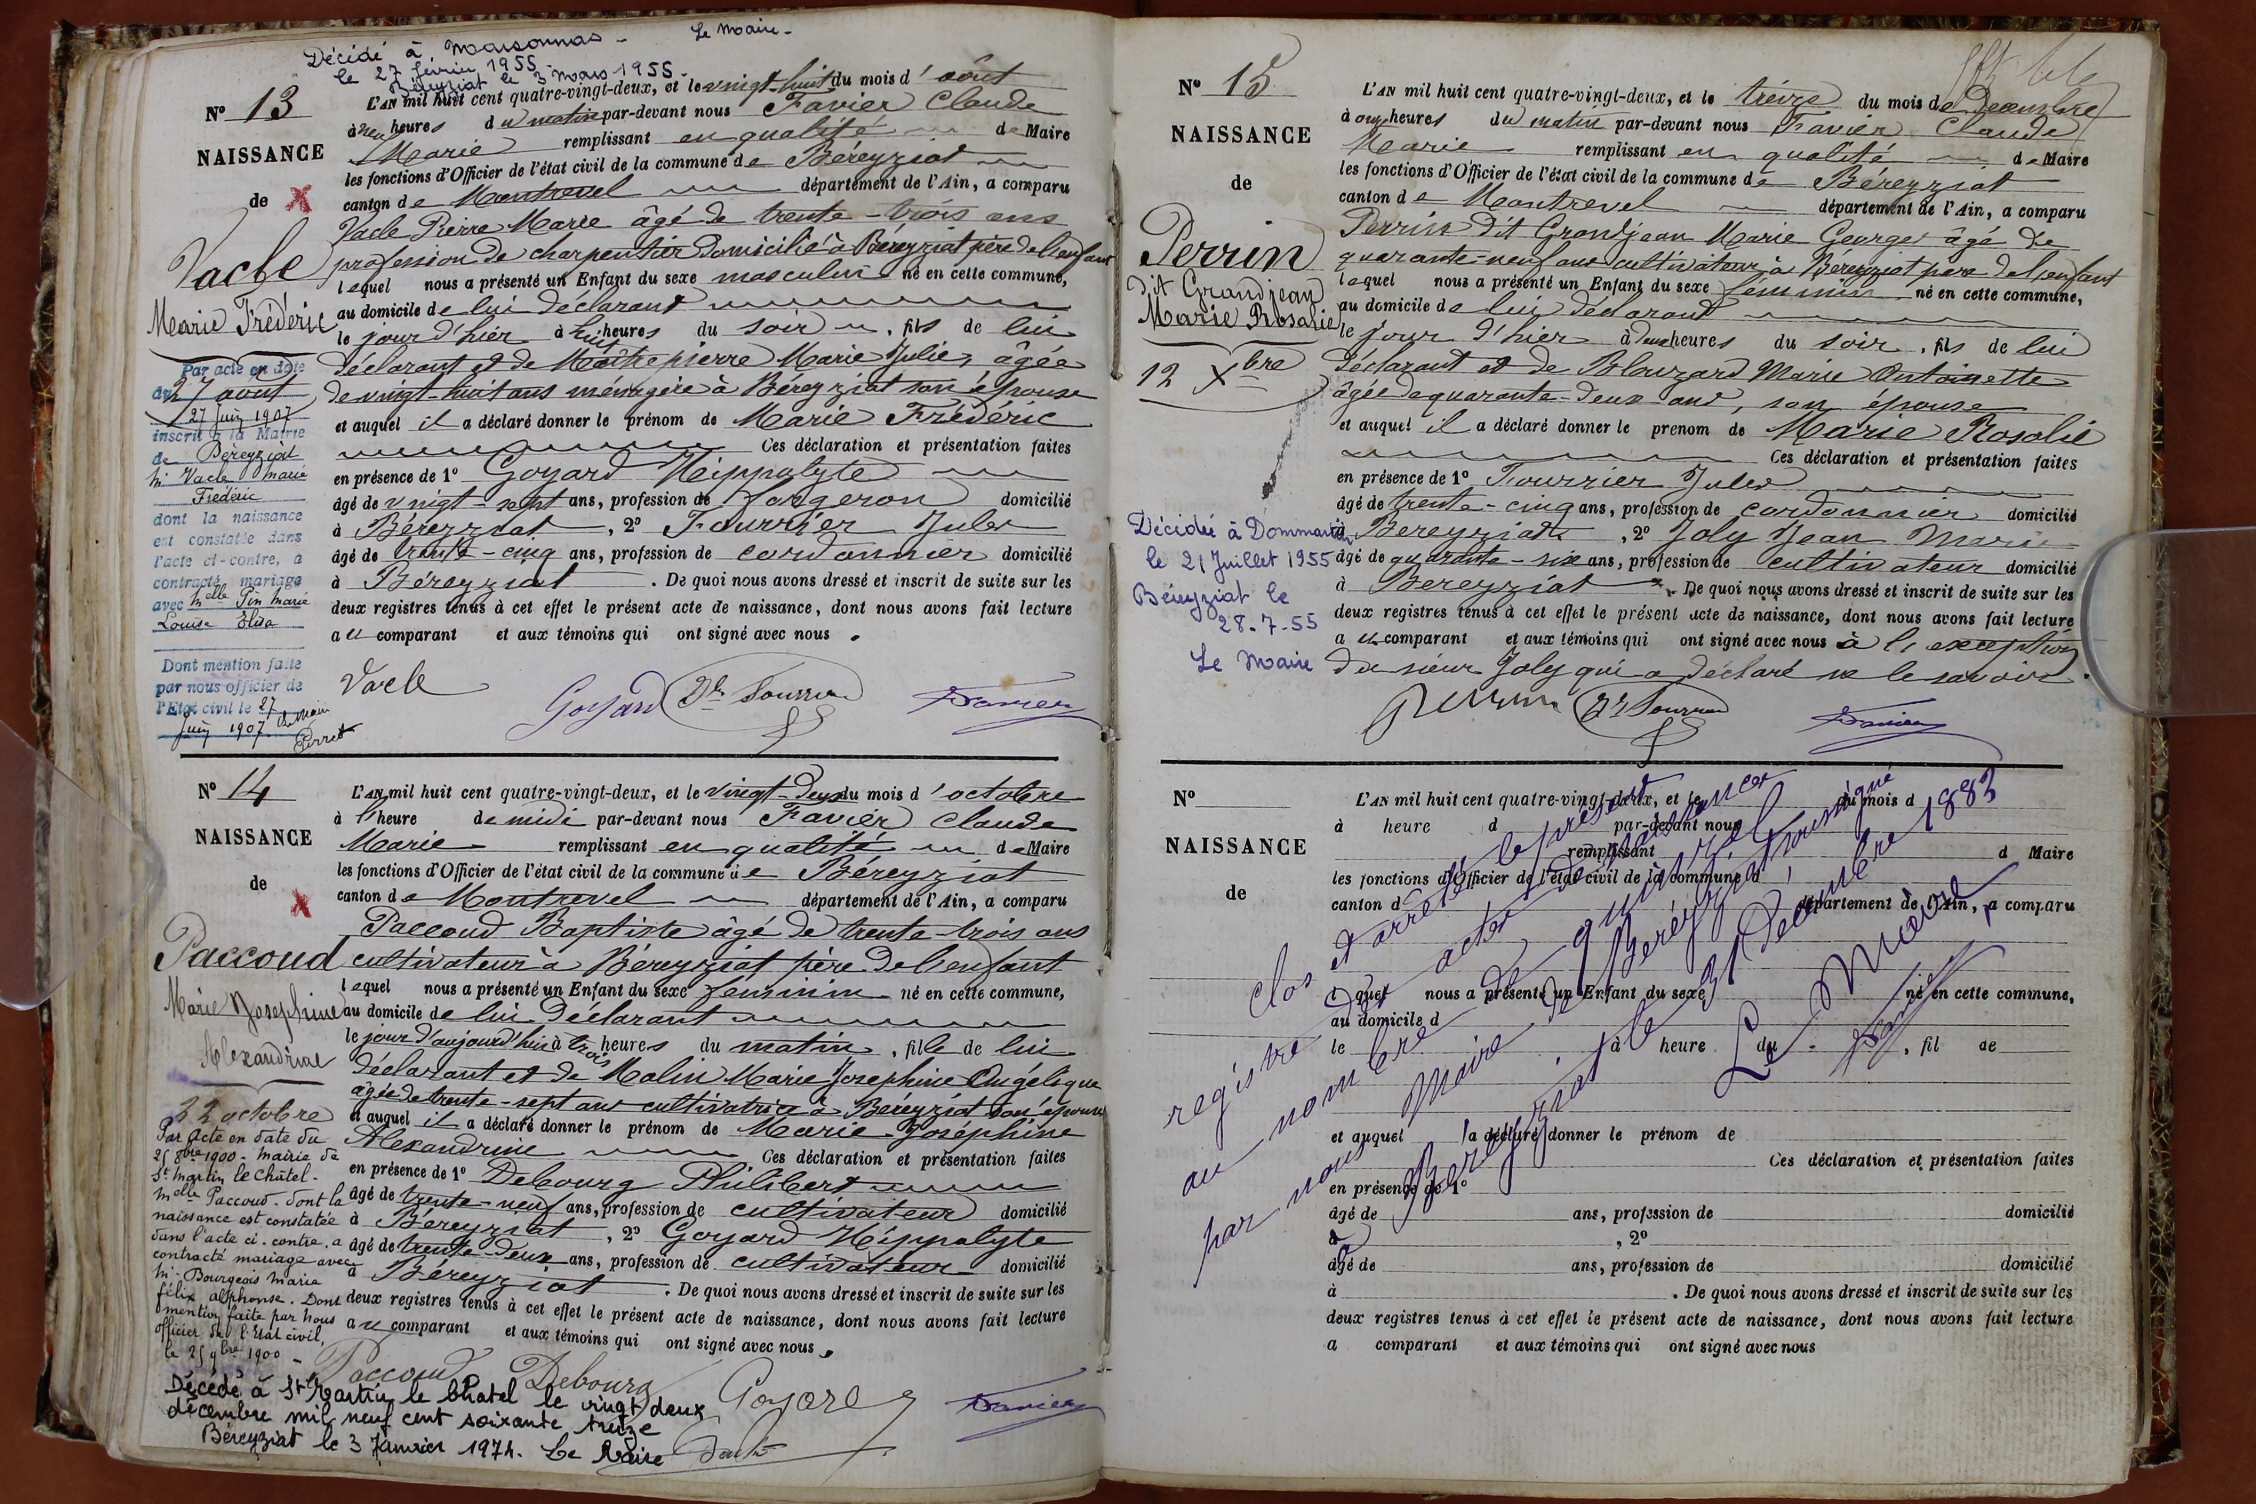 Décidé à Maisonnas - Le Maire -
le 27 février 1955 -
Béreyziat le 3 mars 1955 -
N° 13
NAISSANCE
de X
Vacle
Marie Frédéric
27 août
Par acte en date
du
27 Juin 1907
inscrit à la Mairie
de Béreyziat
Mr Vacle Marie
Frédéric
dont la naissance
est constatée dans
l'acte ci-contre, a
contracté mariage
avec Melle Pin Marie
Louise Elisa
Dont mention faite
par nous officier de
l'Etat civil le 27
Juin 1907 Le Maire
Perret
L'AN mil huit cent quatre-vingt-deux, et le vingt-huit du mois d'août
à neuf heures du matin par-devant nous Favier Claude
Marie remplissant en qualité de Maire
les fonctions d'Officier de l'état civil de la commune de Béreyziat
canton de Montrevel département de l'Ain, a comparu
Vacle Pierre Marie âgé de trente-trois ans
profession de charpentier domicilié à Béreyziat père de l'enfant
lequel nous a présenté un Enfant du sexe masculin né en cette commune,
au domicile de lui déclarant
le jour d'hier à huit heures du soir, fils de lui
déclarant et de Maîtrepierre Marie Julie, âgée
de vingt-huit ans ménagère à Béreyziat son épouse
et auquel il a déclaré donner le prénom de Marie Frédéric
Ces déclaration et présentation faites
en présence de 1° Goyard Hippolyte
âgé de vingt-sept ans, profession de forgeron domicilié
à Béreyziat, 2° Fourrier Jules
âgé de trente-cinq ans, profession de cordonnier domicilié
à Béreyziat. De quoi nous avons dressé et inscrit de suite sur les
deux registres tenus à cet effet le présent acte de naissance, dont nous avons fait lecture
au comparant et aux témoins qui ont signé avec nous.
Vacle Goyard Favier
N° 14
NAISSANCE
de X
Paccoud
Marie Josephine
Alexandrine
22 octobre
Par acte en date du
25 8bre 1900 - mairie de
St Martin le Châtel -
Melle Paccoud - dont la
naissance est constatée
dans l'acte ci-contre, a
contracté mariage avec
Mr. Bourgeois Marie
félix alphonse. Dont
mention faite par nous
officier de l'Etat civil,
le 25 9bre 1900
L'AN mil huit cent quatre-vingt-deux, et le vingt-deux du mois d'octobre
à l'heure de midi par-devant nous Favier Claude
Marie remplissant en qualité de Maire
les fonctions d'Officier de l'état civil de la commune de Béreyziat
canton de Montrevel département de l'Ain, a comparu
Paccoud Baptiste âgé de trente-trois ans
cultivateur à Béreyziat père de l'enfant
lequel nous a présenté un Enfant du sexe féminin né en cette commune,
au domicile de lui déclarant
le jour d'aujourd'hui à trois heures du matin, fille de lui
déclarant et de Malin Marie Josephine Angélique
âgée de trente-sept ans cultivatrice à Béreyziat son épouse
et auquel il a déclaré donner le prénom de Marie-Joséphine
Alexandrine Ces déclaration et présentation faites
en présence de 1° Debourg Philibert
âgé de trente-neuf ans, profession de cultivateur domicilié
à Béreyziat, 2° Goyard Hippolyte
âgé de trente-deux ans, profession de cultivateur domicilié
à Béreyziat. De quoi nous avons dressé et inscrit de suite sur les
deux registres tenus à cet effet le présent acte de naissance, dont nous avons fait lecture
au comparant et aux témoins qui ont signé avec nous.
Paccoud Debourg Goyard Favier
Décédé à St Martin le Chatel le vingt deux
décembre mil neuf cent soixante treize
Béreyziat le 3 Janvier 1974. Le Maire
N° 15
NAISSANCE
de
Perrin
dit Grandjean
Marie Rosalie
12 Xbre
Décédée à Dommartin
le 21 Juillet 1955
Béreyziat le
28-7-55
Le Maire
L'AN mil huit cent quatre-vingt-deux, et le treize du mois de Décembre
à onze heures du matin par-devant nous Favier Claude
Marie remplissant en qualité de Maire
les fonctions d'Officier de l'état civil de la commune de Béreyziat
canton de Montrevel département de l'Ain, a comparu
Perrin dit Grandjean Marie George âgé de
quarante-neuf ans cultivateur à Béreyziat père de l'enfant
lequel nous a présenté un Enfant du sexe féminin né en cette commune,
au domicile de lui déclarant
le jour d'hier à deux heures du soir, fils de lui
déclarant et de Blouzard Marie Antoinette
âgée de quarante-deux ans, son épouse
et auquel il a déclaré donner le prenom de Marie Rosalie
Ces déclaration et présentation faites
en présence de 1° Fourrier Jules
âgé de trente-cinq ans, profession de cordonnier domicilié
à Bereyziat, 2° Joly Jean Marie
âgé de quarante-six ans, profession de cultivateur domicilié
à Bereyziat. De quoi nous avons dressé et inscrit de suite sur les
deux registres tenus à cet effet le présent acte de naissance, dont nous avons fait lecture
au comparant et aux témoins qui ont signé avec nous à l'exception
du sieur Joly qui a déclaré ne le savoir.
Perrin Favier
N°
NAISSANCE
de
L'AN mil huit cent quatre-vingt-deux, et le du mois d
à heure d par-devant nous
remplissant d Maire
les fonctions d'Officier de l'état civil de la commune d
canton d département de l'Ain, a comparu
lequel nous a présenté un Enfant du sexe né en cette commune,
au domicile d
le à heure du , fil de
et auquel a déclaré donner le prénom de
Ces déclaration et présentation faites
en présence de 1°
âgé de ans, profession de domicilié
à , 2°
âgé de ans, profession de domicilié
à . De quoi nous avons dressé et inscrit de suite sur les
deux registres tenus à cet effet le présent acte de naissance, dont nous avons fait lecture
a comparant et aux témoins qui ont signé avec nous
clos et arrêté le présent
registre des actes de naissances
au nombre de quinze
par nous Maire de Béreyziat, soussigné
à Béreyziat le 31 décembre 1882
Le Maire
Favier